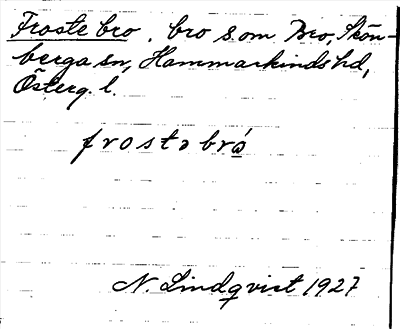 Froste bro, bro s om Bro, Skön-
berga sn, Hammarkinds hd,
Österg. l.
frostəbró
N. Lindqvist 1927